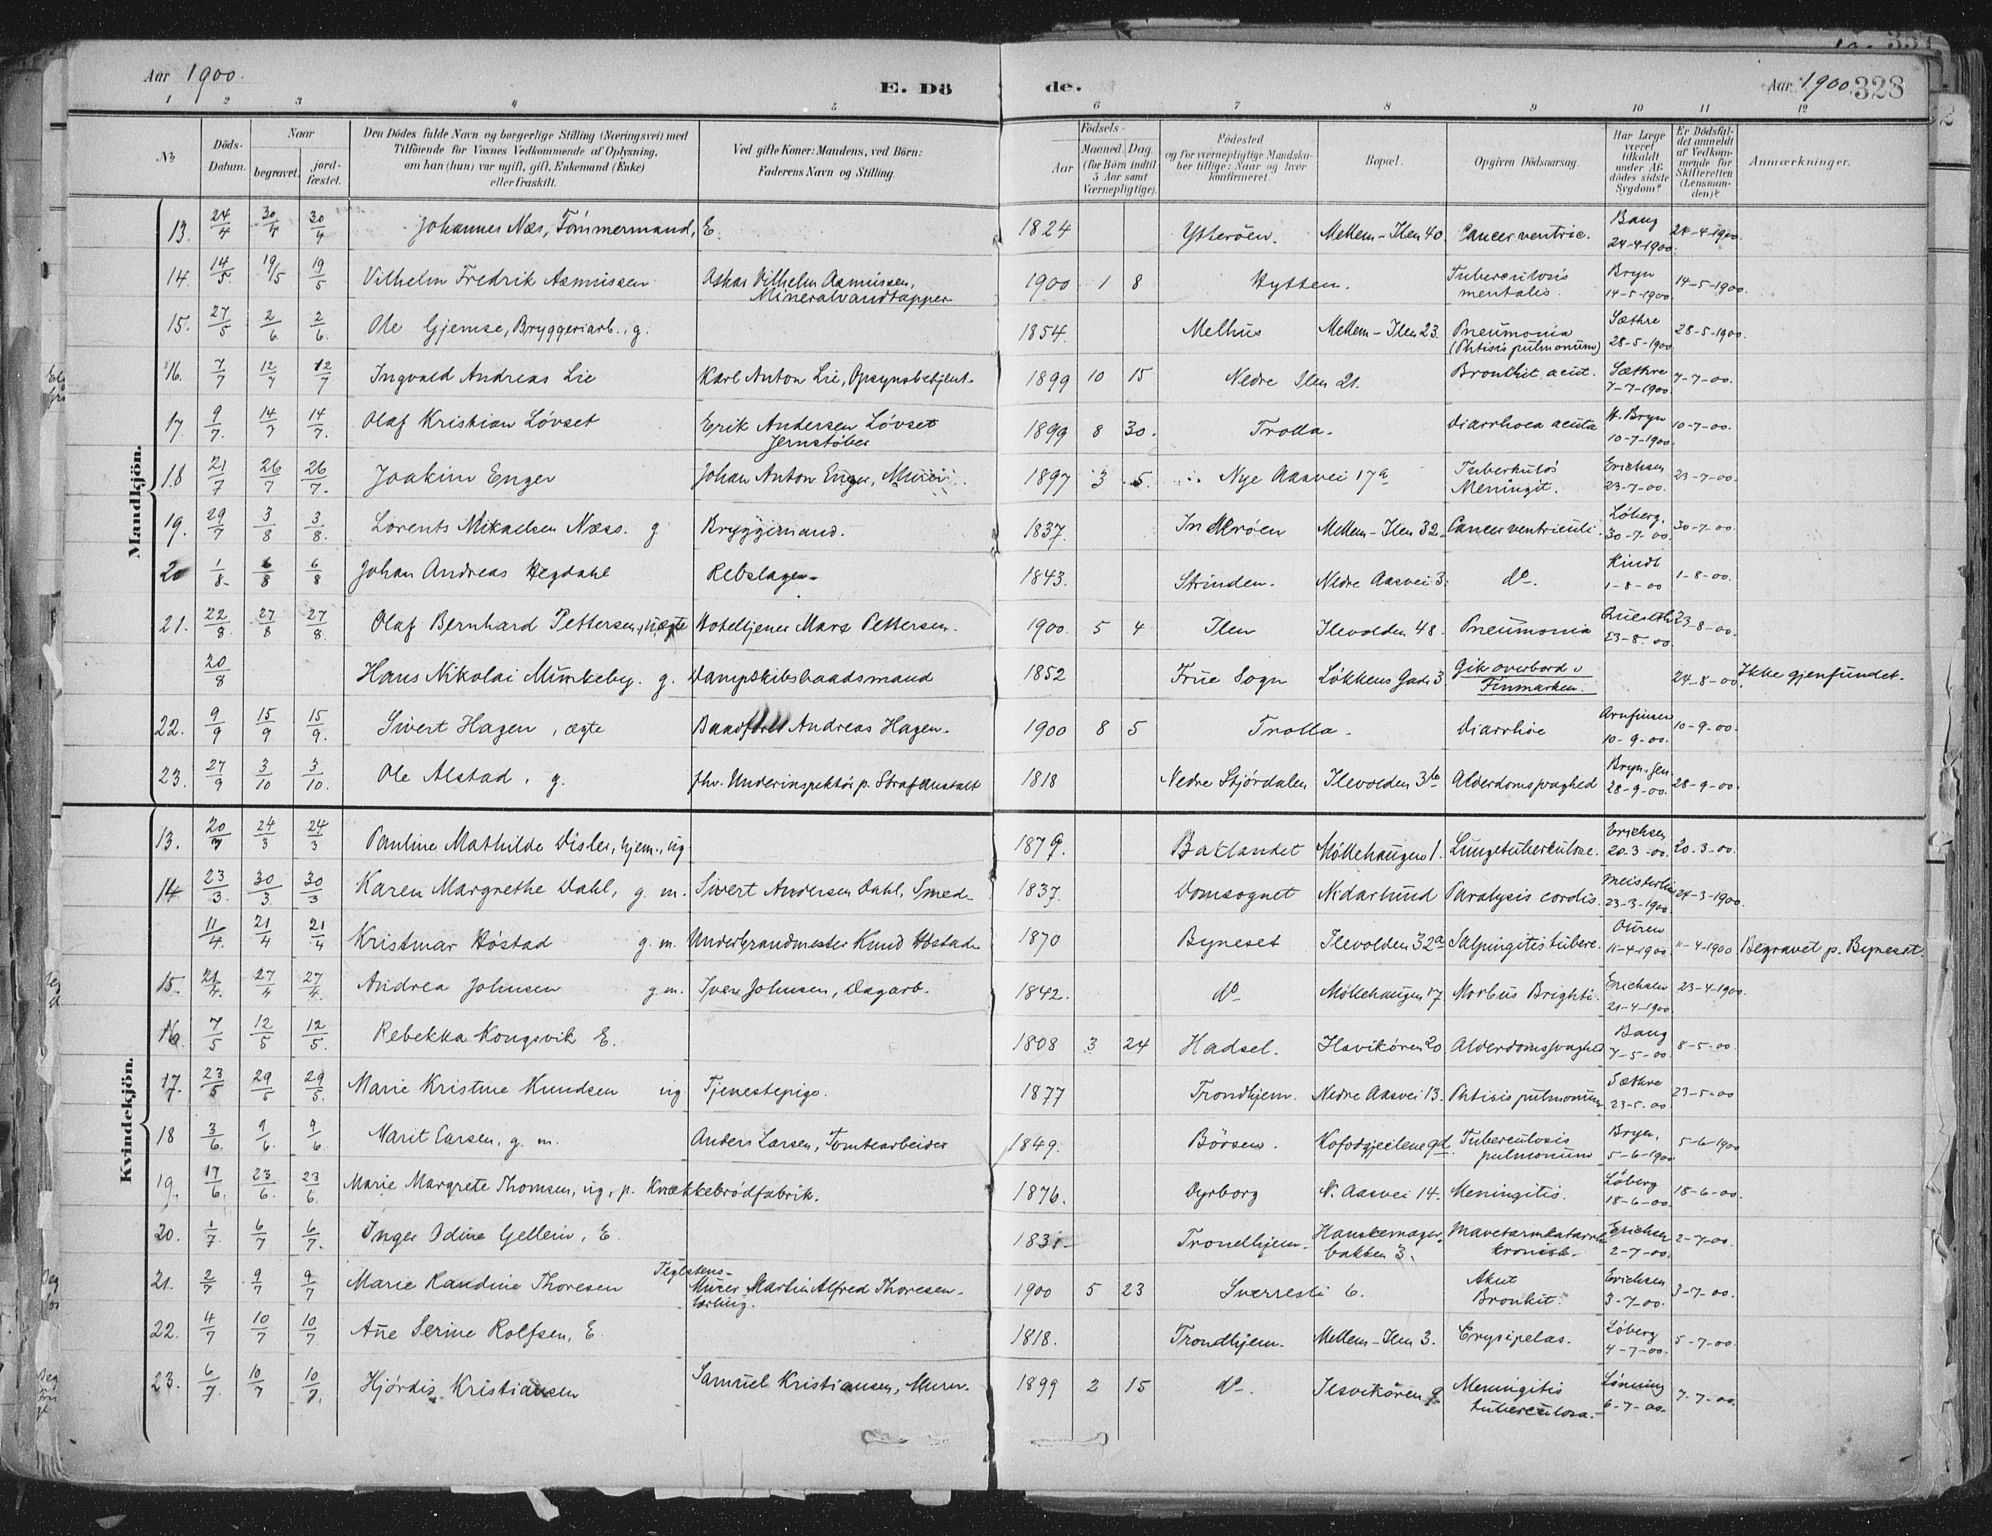 Aar 1900. E. Dö de. Aar 1900. 328
1 2 3 4 5 6 7 8 9 10 11 12
No Döds-Datum. Naar begravet. jordfæstet. Den Dödes fulde Navn og borgerlige Stilling (Næringsvei) med Tilföiende for Voxnes Vedkommende af Oplysning, om han (hun) var ugift, gift, Enkemand (Enke) eller fraskilt. Ved gifte Koner: Mandens, ved Börn: Faderens Navn og Stilling. Födsels- Aar Maaned. Dag. (for Börn indtil 5 Aar samt Værnepligtige). Födested og for værnepligtige Mandskaber tillige: Naar og hvor konfirmeret. Bopæl. Opgiven Dödsaarsag. Har Læge været tilkaldt under Afdödes sidste Sygdom? Er Dödsfaldet anmeldt af Vedkommende for Skifteretten (Lensmanden)? Anmærkninger.
Mandkjön.
13. 24/4 30/4 30/4 Johannes Næs, Tømmermand, E. 1824 Ytterøen. Mellem-Ilen 40. Cancer ventric. Bang 24-4-1900 24-4-1900.
14. 14/5 19/5 19/5 Vilhelm Fredrik Asmussen Oskar Vilhelm Asmussen, Mineralvandtapper 1900 1 8 Hytten. Tuberculosis mentalis. Bryn 14-5-1900 14-5-1900.
15. 27/5 2/6 2/6 Ole Gjemse, Bryggeriarb., g. 1854. Melhus Mellem-Ilen 23. Pneumonia (Phtisis pulmonum) Sæthre 28-5-1900 28-5-1900.
16. 7/7 12/7 12/7 Ingvald Andreas Lie Karl Anton Lie, Opsynsbetjent. 1899 10 15 Nedre Ilen 21. Bronkit acut. Sæthre 7-7-1900 7-7-00.
17. 9/7. 14/7 14/7. Olaf Kristian Løvset Erik Andersen Løvset Jernstøber 1899 8 30. Trolla. Diarrhoea acuta H. Bryn 10-7-1900 10-7-00.
18. 21/7 26/7 26/7. Joakim Enger Johan Anton Enger, Murer. 1897 3 5. Nye Aasvei 17a Tuberkuløs Meningit. Erichsen 23-7-00. 23-7-00.
19. 29/7 3/8 3/8. Lorents Mikaelsen Næss. g Bryggemand. 1837. Inderøen Mellem-Ilen 32. Cancer ventriculi. Löberg. 30-7-00. 30-7-00.
20 1/8- 6/8 6/8 Johan Andreas Hegdahl Rebslager. 1843. Strinden. Nedre Aasvei 3. do. Kindt 1-8-00 1-8-00.
21. 22/8. 27/8 27/8. Olaf Bernhard Pettersen, uægte Hoteltjener Marx Pettersen. 1900. 5 4 Ilen Ilevolden 48. Pneumonia 23-8-00. 23-8-00.
20/8 Hans Nikolai Munkeby. g. Dampskibsbaadsmand 1852 Frue Sogn Løkkens Gade 3 Gik overbord v Finmarken. 24-8-00. Ikke gjenfundet.
22. 9/9 15/9 15/9. Sivert Hagen, ægte Baadfører Andreas Hagen. 1900 8 5 Trolla. Diarrhöe Arnfinsen 10-9-00. 10-9-00.
23. 27/9 3/10 3/10. Ole Alstad, g. fhv. Underinspektör p. Strafanstalt 1818 Nedre Stjördalen Ilevolden 36 Alderdomssvaghed Bryn. sen. 28-9-00. 28-9-00.
Kvindekjön.
13. 20/3 24/3 24/3 Pauline Mathilde Disler, hjem., ug. 1879. Baklandet Möllehaugen 1. Lungetuberkulose. Erichsen 20-3-00. 20-3-00.
14 23/3. 30/3 30/3 Karen Margrethe Dahl, g. m. Sivert Andersen Dahl, Smed. 1837. Domsognet Nidarlund Paralysis cordis. 23-3-1900 24-3-1900.
11/4. 21/4 21/4 Kristmar Höstad g. m. Underbrandmester Knud Höstad 1870 Byneset Ilevolden 32a Salpingitis tuberc. Ouren 11-4-1900 11-4-1900 Begravet p. Byneset.
15. 21/4. 27/4 27/4. Andrea Johnsen g.m. Iver Johnsen, Dagarb. 1842. do Möllehaugen 17 Morbus Brighti. Erichsen 21-4-1900 23-4-1900.
16. 7/5 12/5 12/5. Rebekka Kongsvik E. 1808 3 24 Hadsel. Ilsvikören 20 Alderdomssvaghed Bang 7-5-00. 8-5-00.
17. 23/5 29/5 29/5. Marie Kristine Knudsen ug Tjenestepige. 1877 Trondhjem. Nedre Aasvei 13. Phtisis pulmonum Sæthre 23-5-00 23-5-00
18 3/6. 9/6. 9/6 Marit Larsen, g. m. Anders Larsen, Tomtearbeider 1849. Börsen. Kofodgjeilene 9d. Tuberculosis pulmonum Bryn, 5-6-1900 5-6-1900
19. 17/6. 23/6. 23/6. Marie Margrete Thomsen, ug, p. Knækkebrødfabrik. 1876. Dyrborg N. Aasvei 14. Meningitis. Löberg 18-6-00. 18-6-00.
20. 1/7. 6/7 6/7. Inger Odine Gellein, E 1831 Trondhjem. Hanskemagerbakken 3. Mavetarmkatarrh kronisk. Erichsen 2-7-00. 2-7-00.
21. 2/7 9/7 9/7 Marie Randine Thoresen Teglstens-Murer Martin Alfred Thoresen. 1900 5 23 Sverresli 6. Akut Bronkit. Erichsen 3-7-00. 3-7-00.
22. 4/7 10/7 10/7 Ane Serine Rolfsen, E. 1818. Trondhjem. Mellem-Ilen 3. Erysipelas. Löberg 4-7-00. 5-7-00.
23. 6/7. 10/7 10/7. Hjördis Kristiansen Samuel Kristiansen, Murer. 1899 2 15 do. Ilsvikören 9 Meningitis tuberculosa. Lönning 6-7-00. 7-7-00.